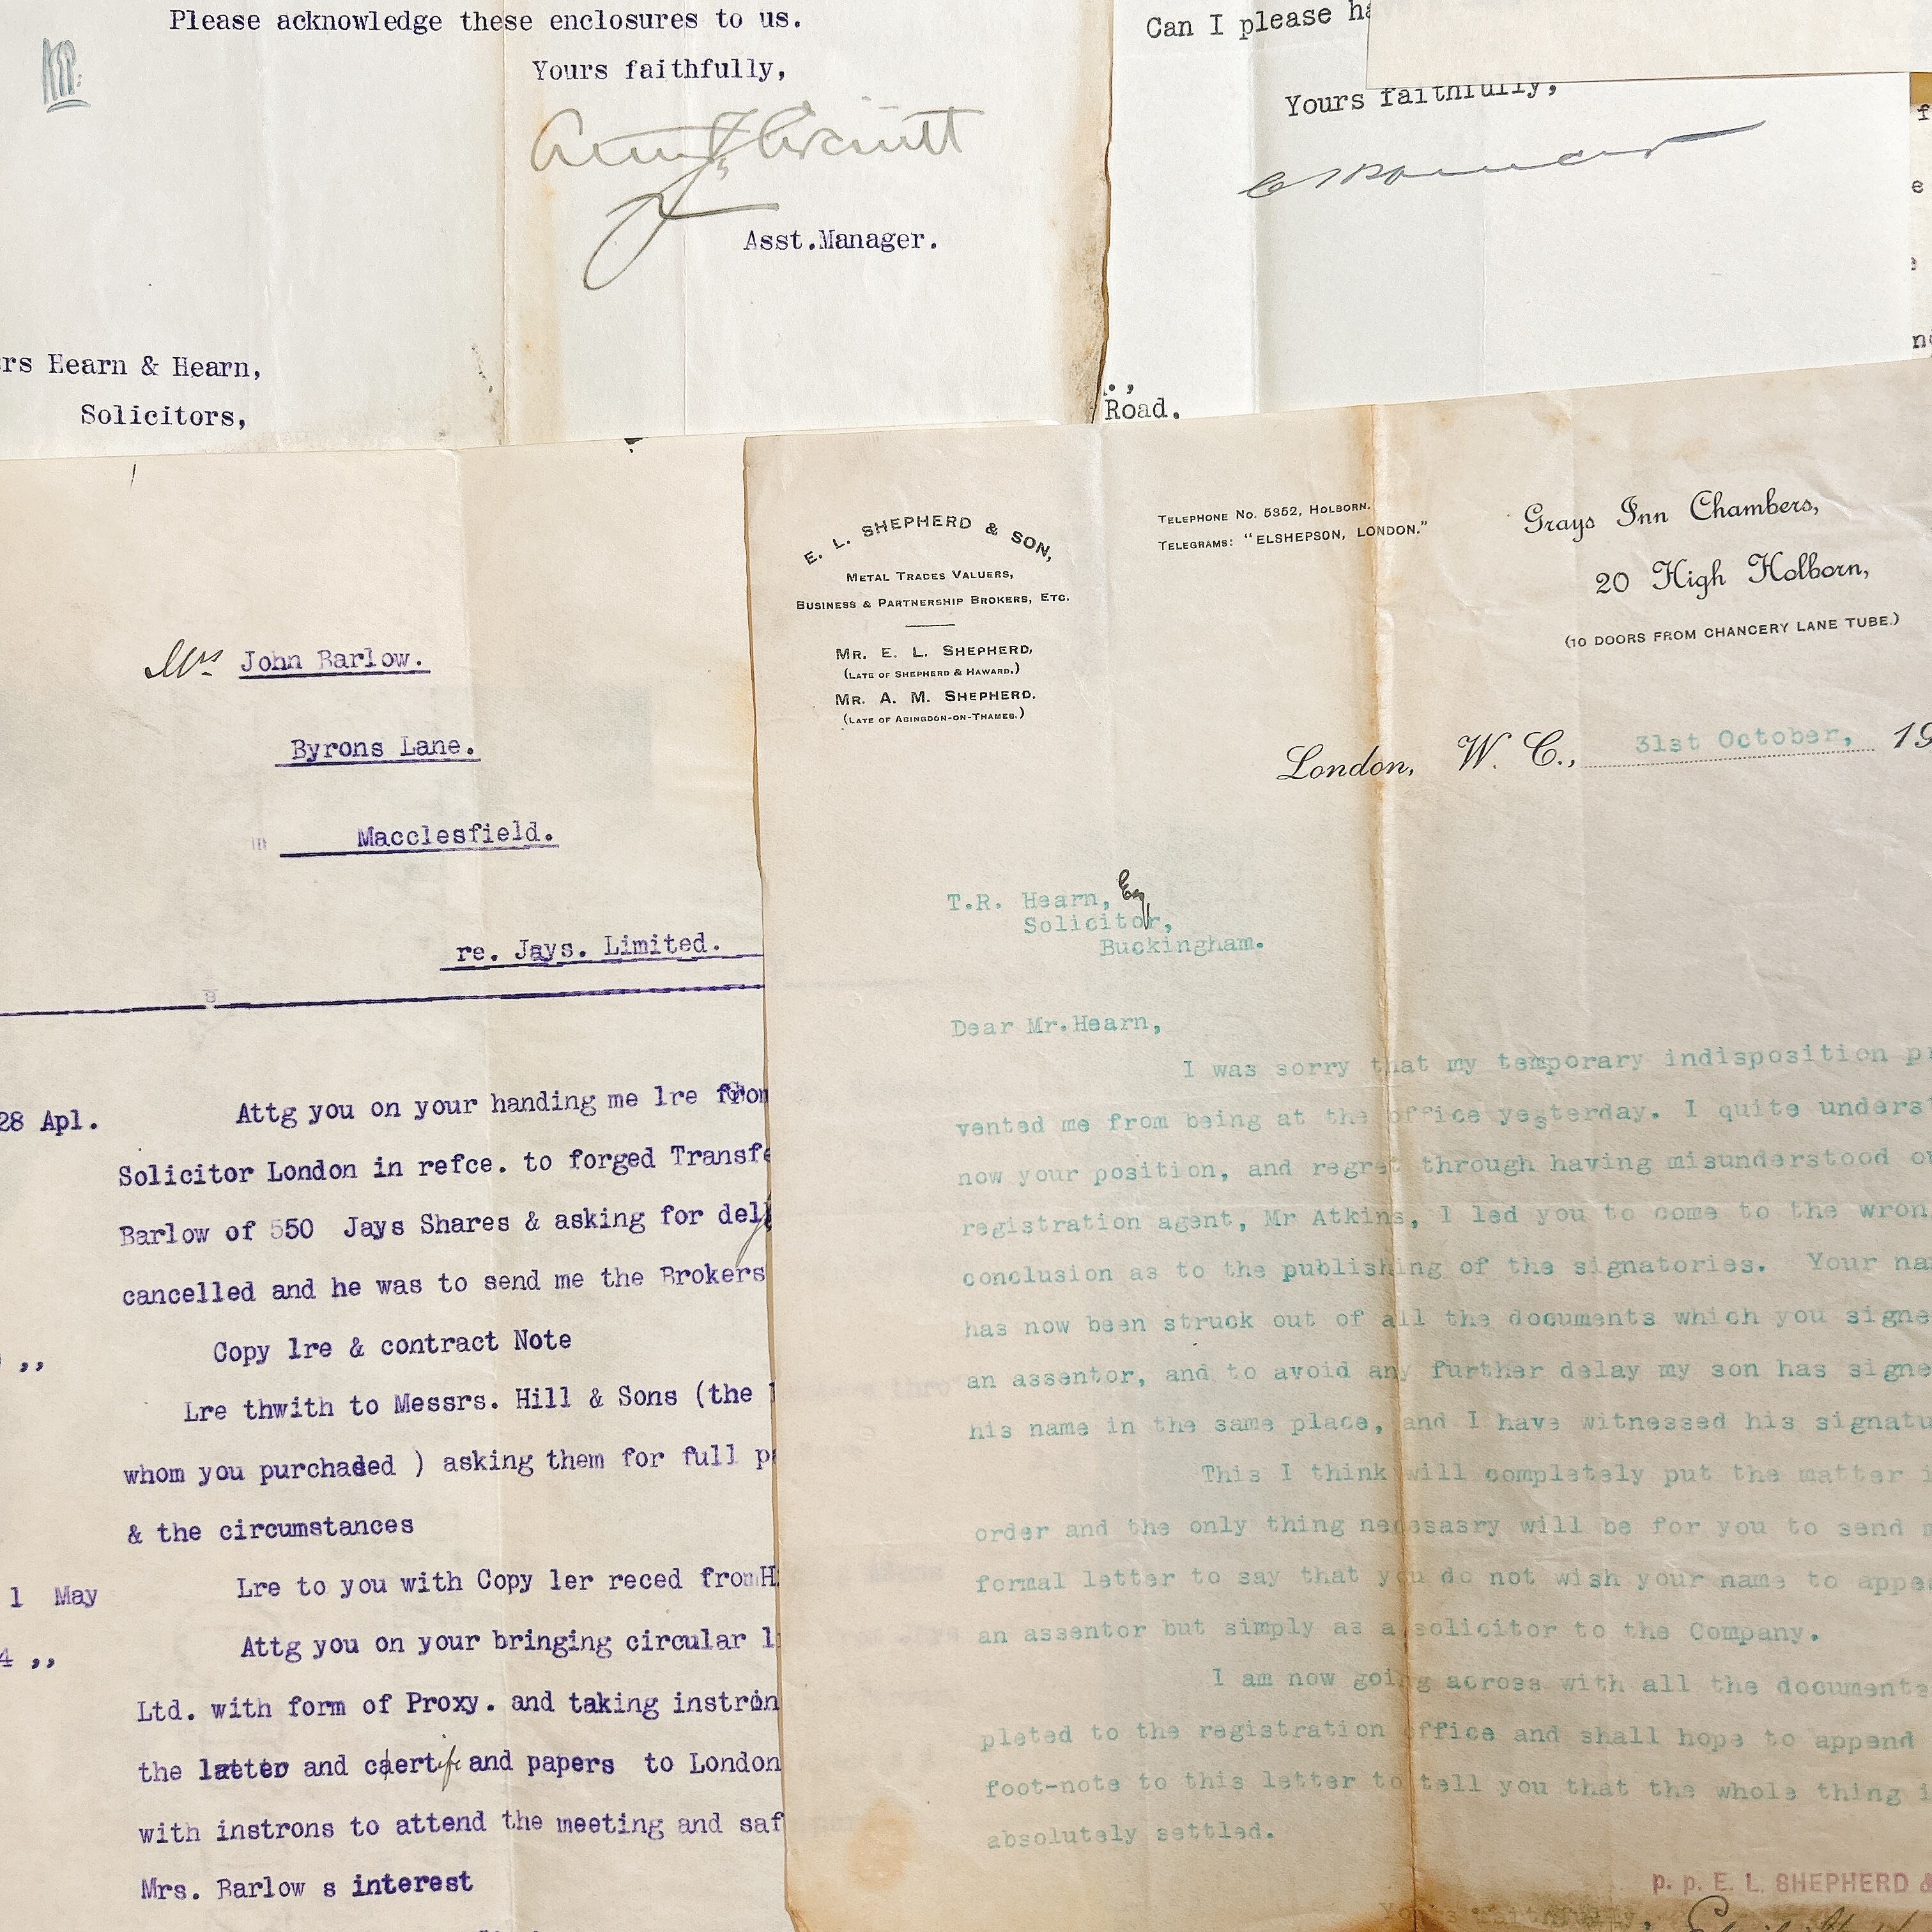 Please acknowledge these enclosures to us.
Yours faithfully,
Asst.Manager.
rs Hearn & Hearn,
Solicitors,
Can I please ha
Yours faithfully,
Road.
Mrs John Barlow.
Byrons Lane.
Macclesfield.
re. Jays. Limited.
28 Apl. Attg you on your handing me lre from
Solicitor London in refce. to forged Transfe
Barlow of 550 Jays Shares & asking for del
cancelled and he was to send me the Brokers
Copy lre & contract Note
,, Lre thwith to Messrs. Hill & Sons (the
whom you purchased ) asking them for full p
& the circumstances
1 May Lre to you with Copy ler reced from H
4 ,, Attg you on your bringing circular l
Ltd. with form of Proxy. and taking instron
the latter and certife and papers to London
with instrons to attend the meeting and saf
Mrs. Barlow s interest
E. L. SHEPHERD & SON,
METAL TRADES VALUERS,
BUSINESS & PARTNERSHIP BROKERS, ETC.
MR. E. L. SHEPHERD,
(LATE OF SHEPHERD & HAWARD.)
MR. A. M. SHEPHERD.
(LATE OF ABINGDON-ON-THAMES.)
TELEPHONE NO. 5352, HOLBORN.
TELEGRAMS: "ELSHEPSON, LONDON."
Grays Inn Chambers,
20 High Holborn,
(10 DOORS FROM CHANCERY LANE TUBE.)
London, W. C., 31st October, 19
T.R. Hearn, Esq
Solicitor,
Buckingham.
Dear Mr.Hearn,
I was sorry that my temporary indisposition pr
vented me from being at the office yesterday. I quite underst
now your position, and regret through having misunderstood ou
registration agent, Mr Atkins, I led you to come to the wron
conclusion as to the publishing of the signatories. Your na
has now been struck out of all the documents which you signe
an assentor, and to avoid any further delay my son has signe
his name in the same place, and I have witnessed his signatu
This I think will completely put the matter i
order and the only thing necessasry will be for you to send m
formal letter to say that you do not wish your name to appea
an assentor but simply as a solicitor to the Company.
I am now going across with all the documents
pleted to the registration office and shall hope to append
foot-note to this letter to tell you that the whole thing i
absolutely settled.
p. p. E. L. SHEPHERD &
Yours faithfully,